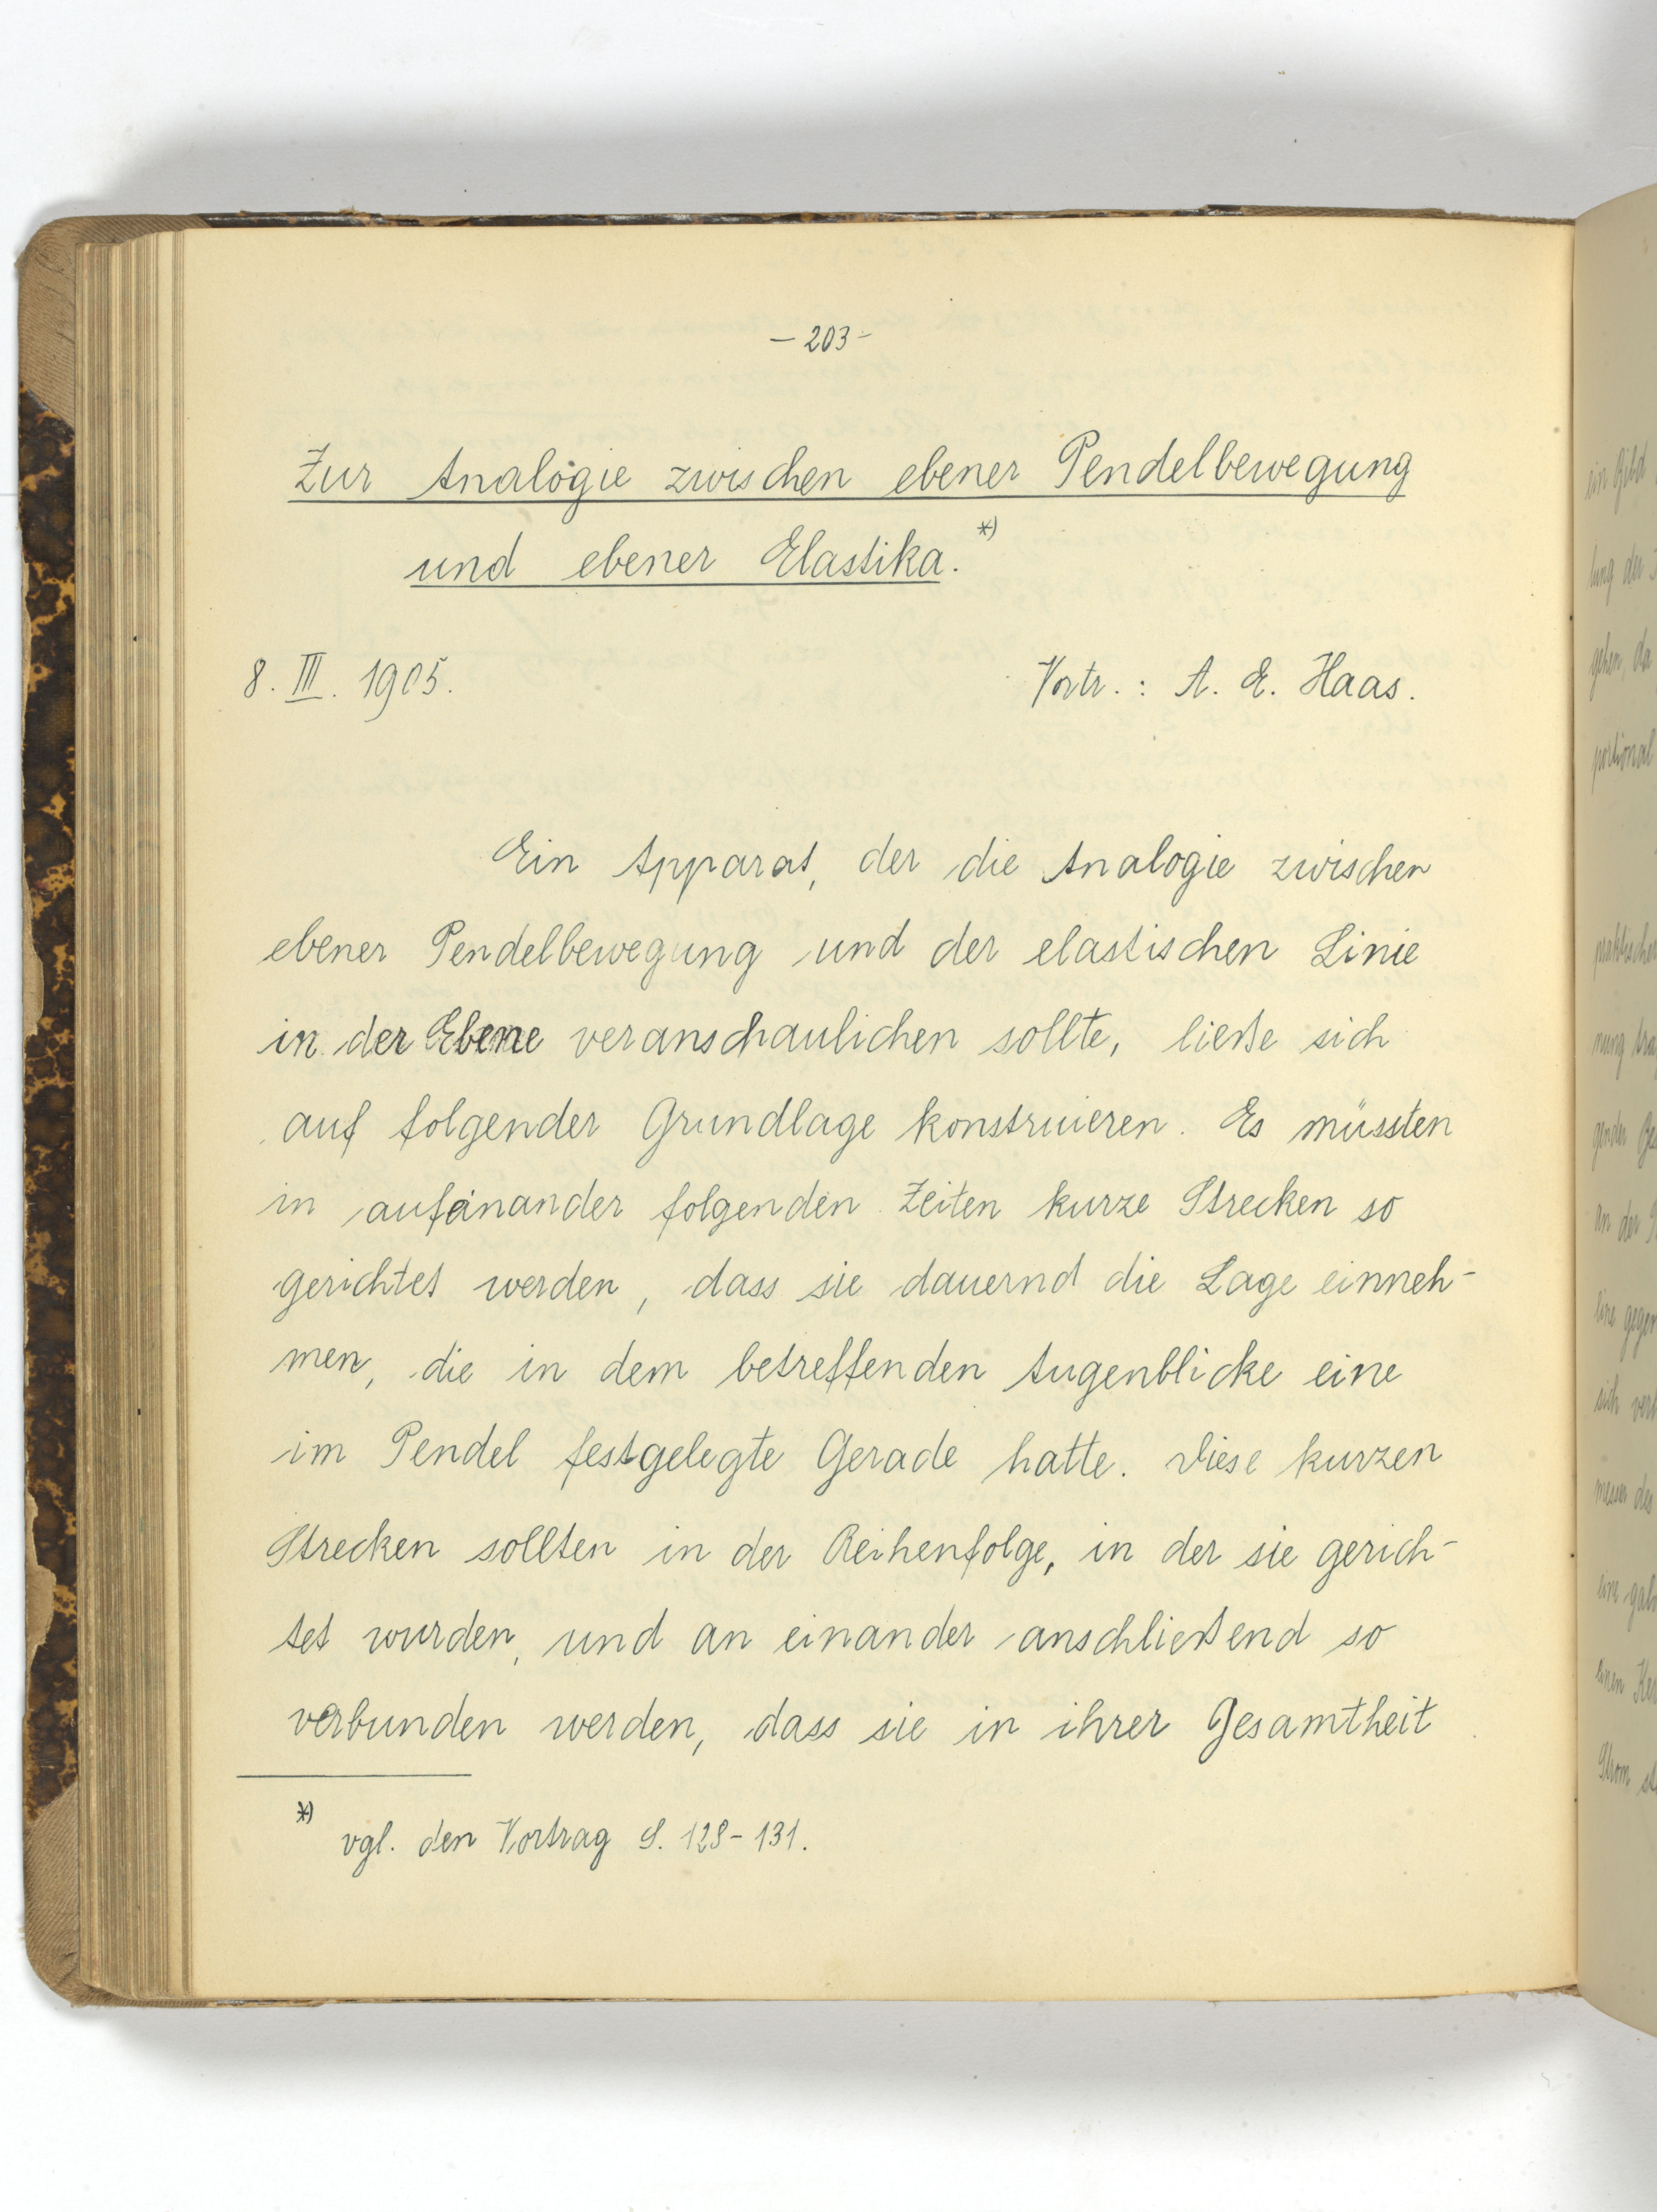 – 203 –
Zur Analogie zwischen ebener Pendelbewegung
und ebener Elastika. *)
8. III. 1905. Vortr.: A. E. Haas.
Ein Apparat, der die Analogie zwischen
ebener Pendelbewegung und der elastischen Linie
in der Ebene veranschaulichen sollte, ließe sich
auf folgender Grundlage konstruieren. Es müssten
in aufeinander folgenden Zeiten kurze Strecken so
gerichtet werden, dass sie dauernd die Lage einneh-
men, die in dem betreffenden Augenblicke eine
im Pendel festgelegte Gerade hatte. Diese kurzen
Strecken sollten in der Reihenfolge, in der sie gerich-
tet wurden, und an einander anschließend so
verbunden werden, dass sie in ihrer Gesamtheit
*) vgl. den Vortrag S. 128–131.